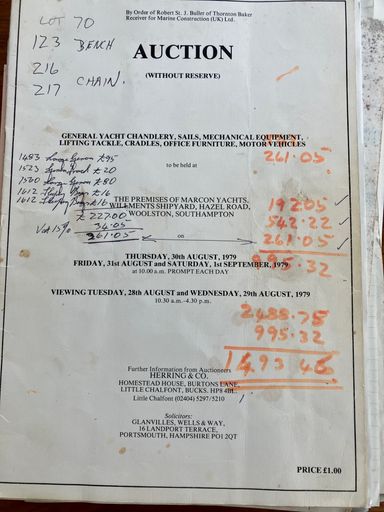 LOT 70
123 BENCH
216
217 CHAIN.
By Order of Robert St. J. Buller of Thornton Baker
Receiver for Marine Construction (UK) Ltd.
AUCTION
(WITHOUT RESERVE)
GENERAL YACHT CHANDLERY, SAILS, MECHANICAL EQUIPMENT,
LIFTING TACKLE, CRADLES, OFFICE FURNITURE, MOTOR VEHICLES
to be held at
261.05
1483 £95
1523 £20
1560 £80
1612 £16
1612 £16
£ 227.00
Vat 15% 34.05
261.05
THE PREMISES OF MARCON YACHTS,
WILLMENTS SHIPYARD, HAZEL ROAD,
WOOLSTON, SOUTHAMPTON
on
192.05
542.22
261.05
995.32
THURSDAY, 30th AUGUST, 1979
FRIDAY, 31st AUGUST and SATURDAY, 1st SEPTEMBER, 1979
at 10.00 a.m. PROMPT EACH DAY
VIEWING TUESDAY, 28th AUGUST and WEDNESDAY, 29th AUGUST, 1979
10.30 a.m.-4.30 p.m.
2488.78
995.32
1493.46
Further Information from Auctioneers
HERRING & CO.
HOMESTEAD HOUSE, BURTONS LANE,
LITTLE CHALFONT, BUCKS. HP8 4BL.
Little Chalfont (02404) 5297/5210
Solicitors:
GLANVILLES, WELLS & WAY,
16 LANDPORT TERRACE,
PORTSMOUTH, HAMPSHIRE PO1 2QT
PRICE £1.00